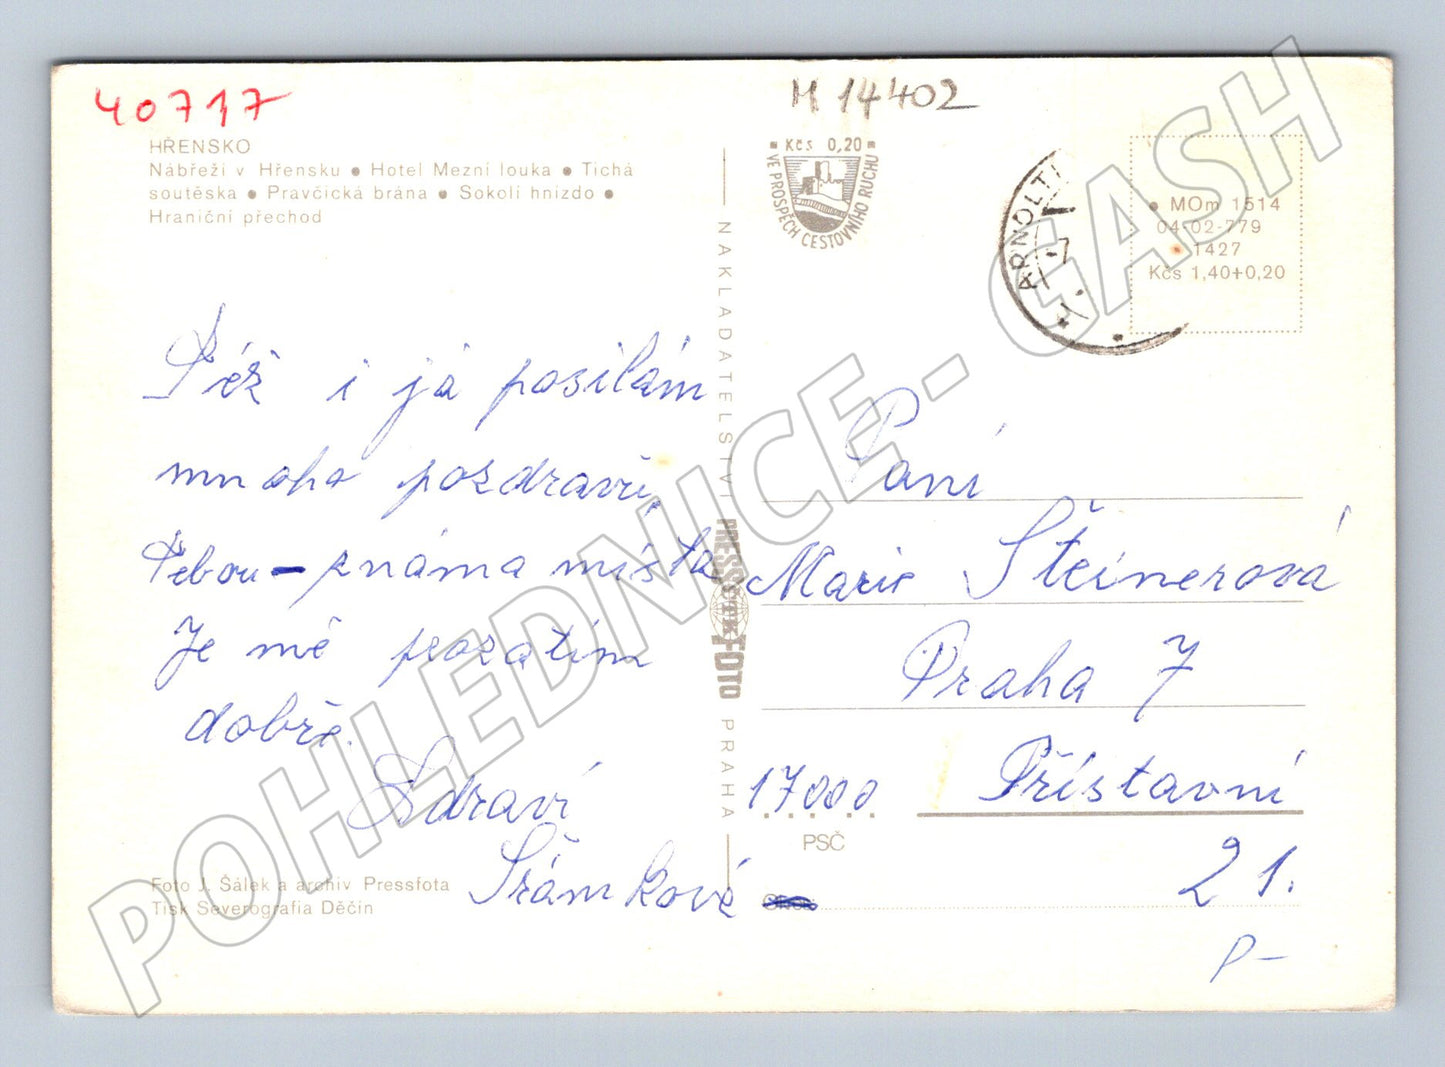 40717
M 14402
HŘENSKO
Nábřeží v Hřensku ● Hotel Mezní louka ● Tichá
soutěska ● Pravčická brána ● Sokolí hnízdo ●
Hraniční přechod
Kčs 0,20
VE PROSPĚCH CESTOVNÍHO RUCHU
ARNOLTI
7
MOm 1514
04-02-779
1427
Kčs 1,40+0,20
Též i já posílám
mnoho pozdravů,
Tebou - známa místa
Je mě prozatím
dobře.
Zdraví
Šrámková
NAKLADATELSTVÍ PRESSFOTO PRAHA
Paní
Marie Šteinerová
Praha 7
17000 Přístavní
PSČ
21.
P-
Foto J. Šálek a archiv Pressfota
Tisk Severografia Děčín
POHLEDNICE - GASH